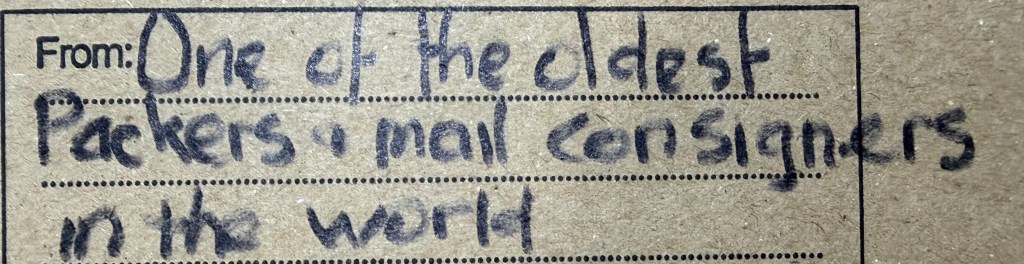 From: One of the oldest
Packers & mail consigners
in the world